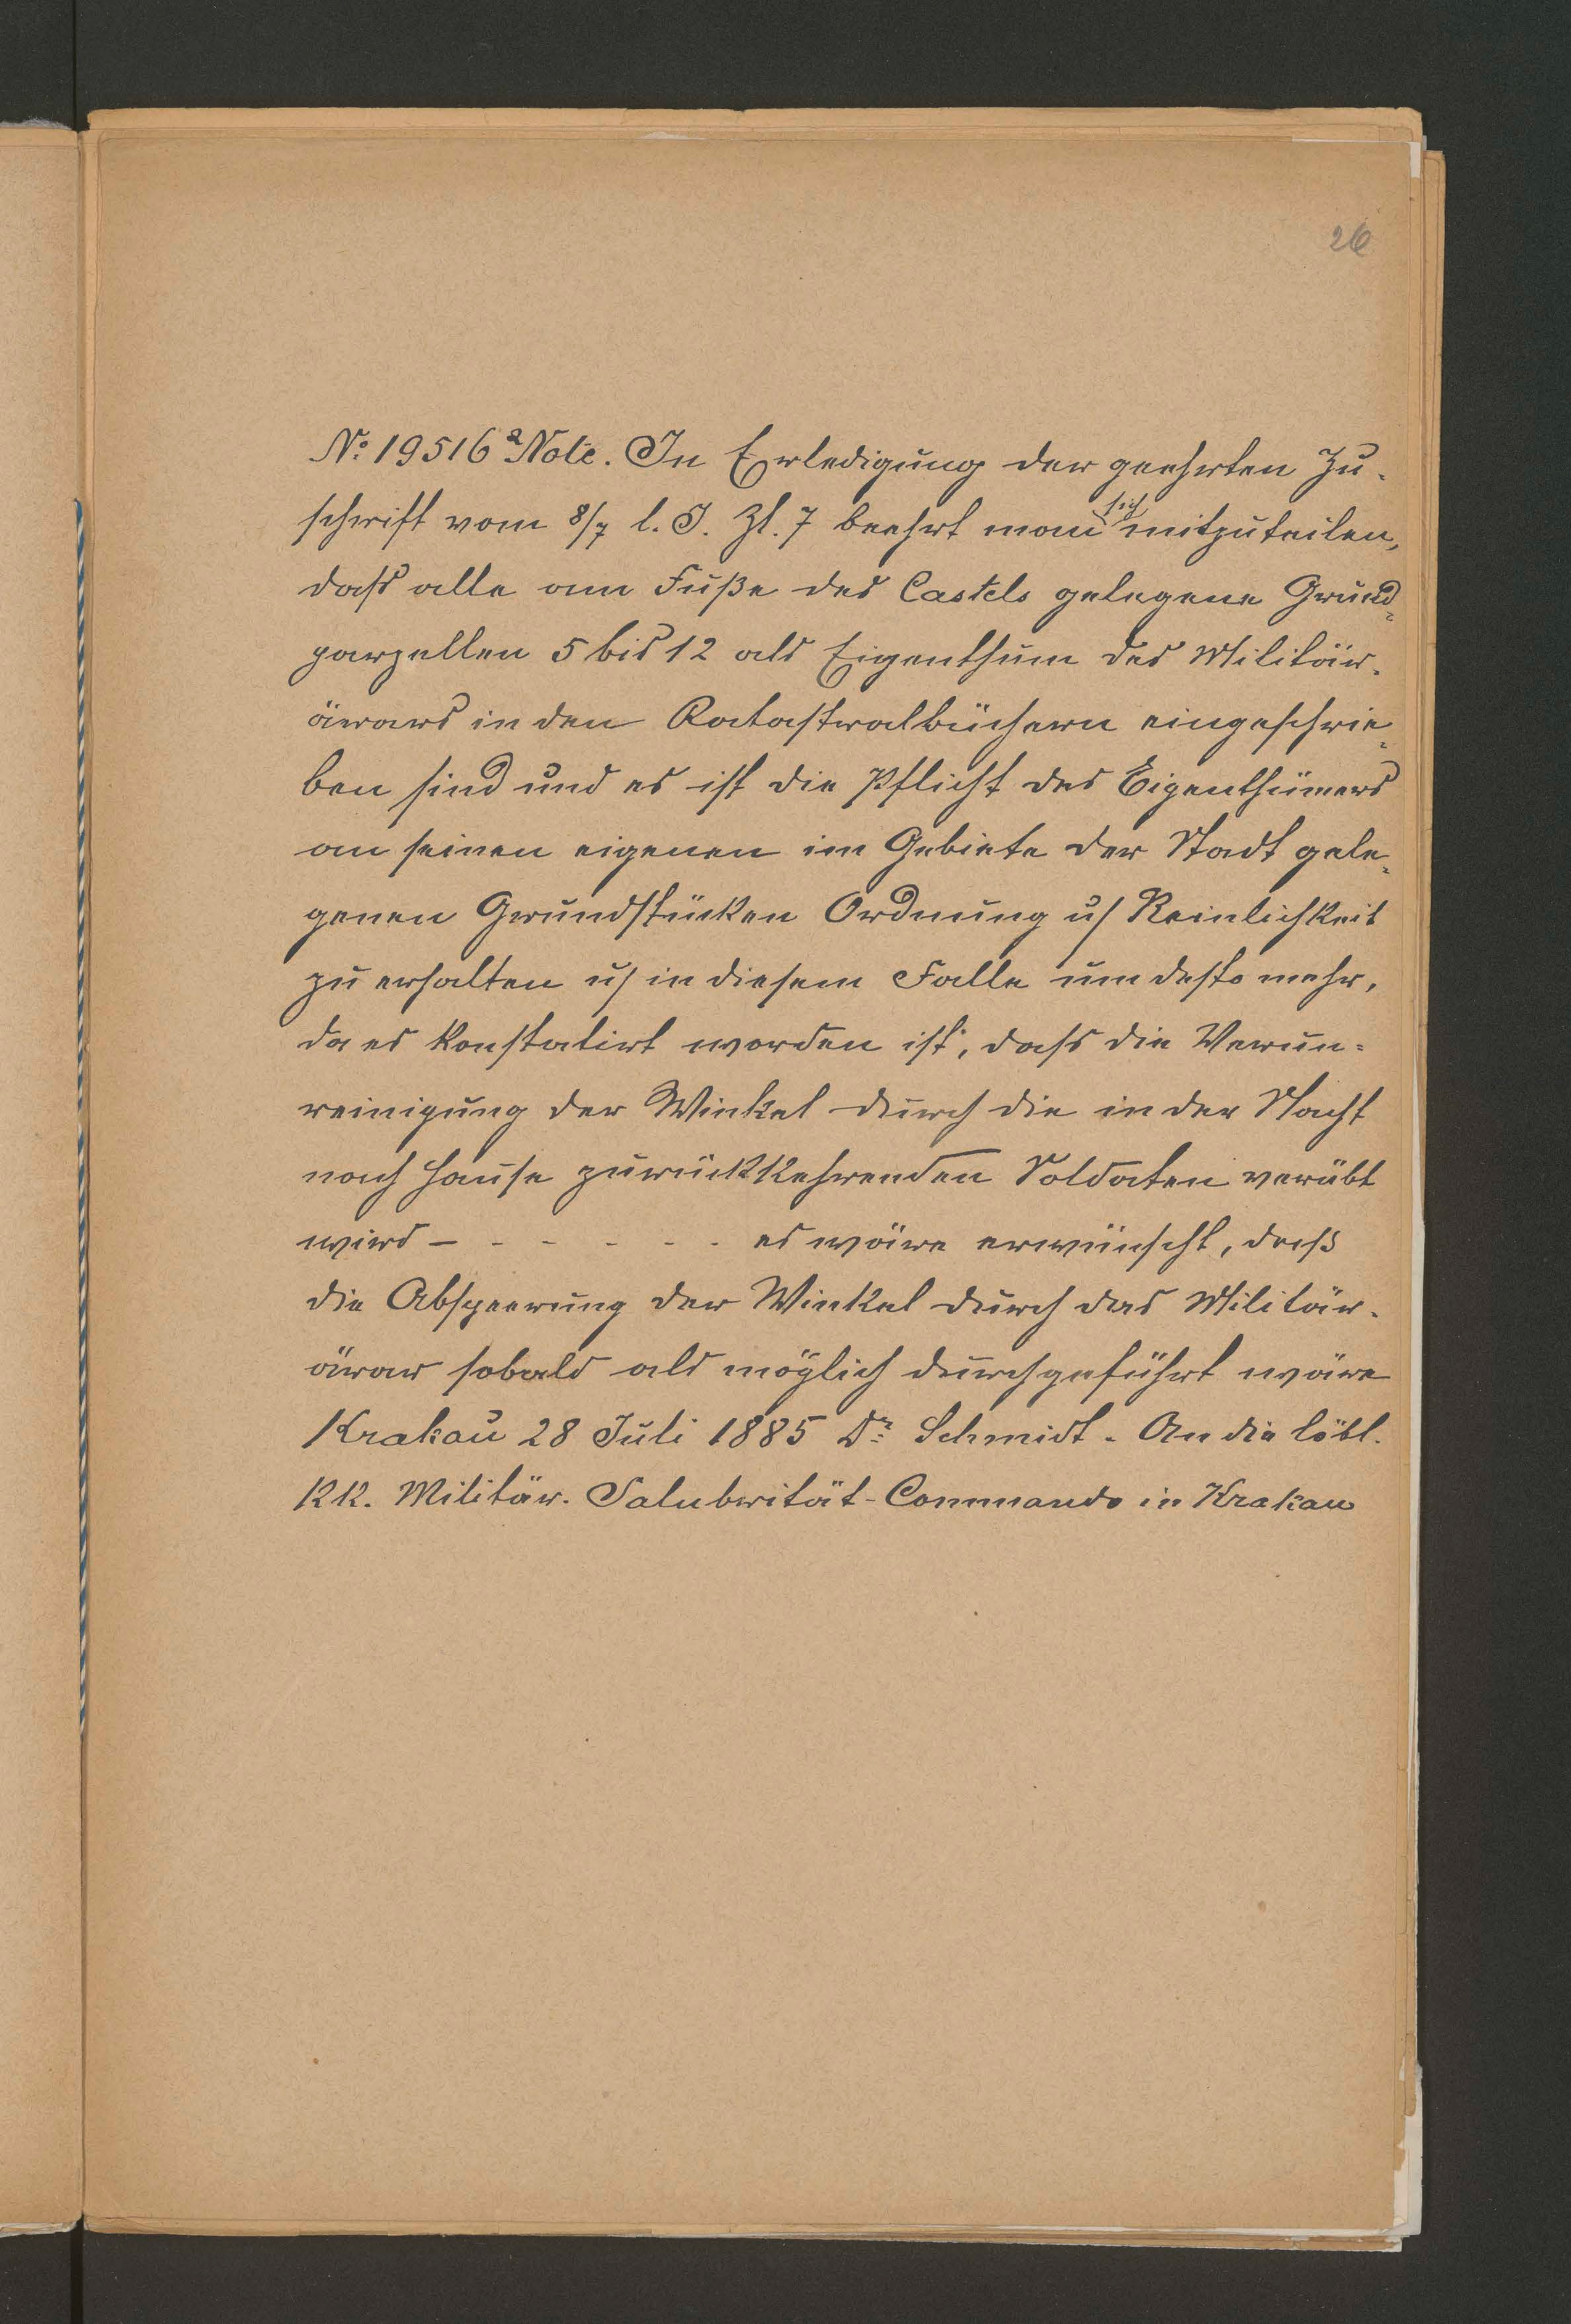 26
No 19516 a Note. In Erledigung der geehrten Zu-
schrift vom 8/7 l. J. Zl. 7 beehrt man sich mitzuteilen,
daſs alle am Fuße des Castels gelegene Grund=
parzellen 5 bis 12 als Eigenthum des Militär-
ärars in den Katastralbüchern eingeschrie=
ben sind und es ist die Pflicht des Eigenthümers
an seinen eigenen im Gebiete der Stadt gele=
genen Grundstücken Ordnung u/ Reinlichkeit
zu erhalten u/ in diesem Falle um desto mehr,
da es konstatirt worden ist, daſs die Verun=
reinigung der Winkel durch die in der Nacht
nach Hause zurückkehrenden Soldaten verübt
wird - - - - - - - es wäre erwünscht, daß
die Absperrung der Winkel durch das Militär-
ärar sobald als möglich durchgeführt wäre
Krakau 28 Juli 1885 Dr Schmidt - An die löbl.
KK. Militär-Salubrität-Commando in Krakau